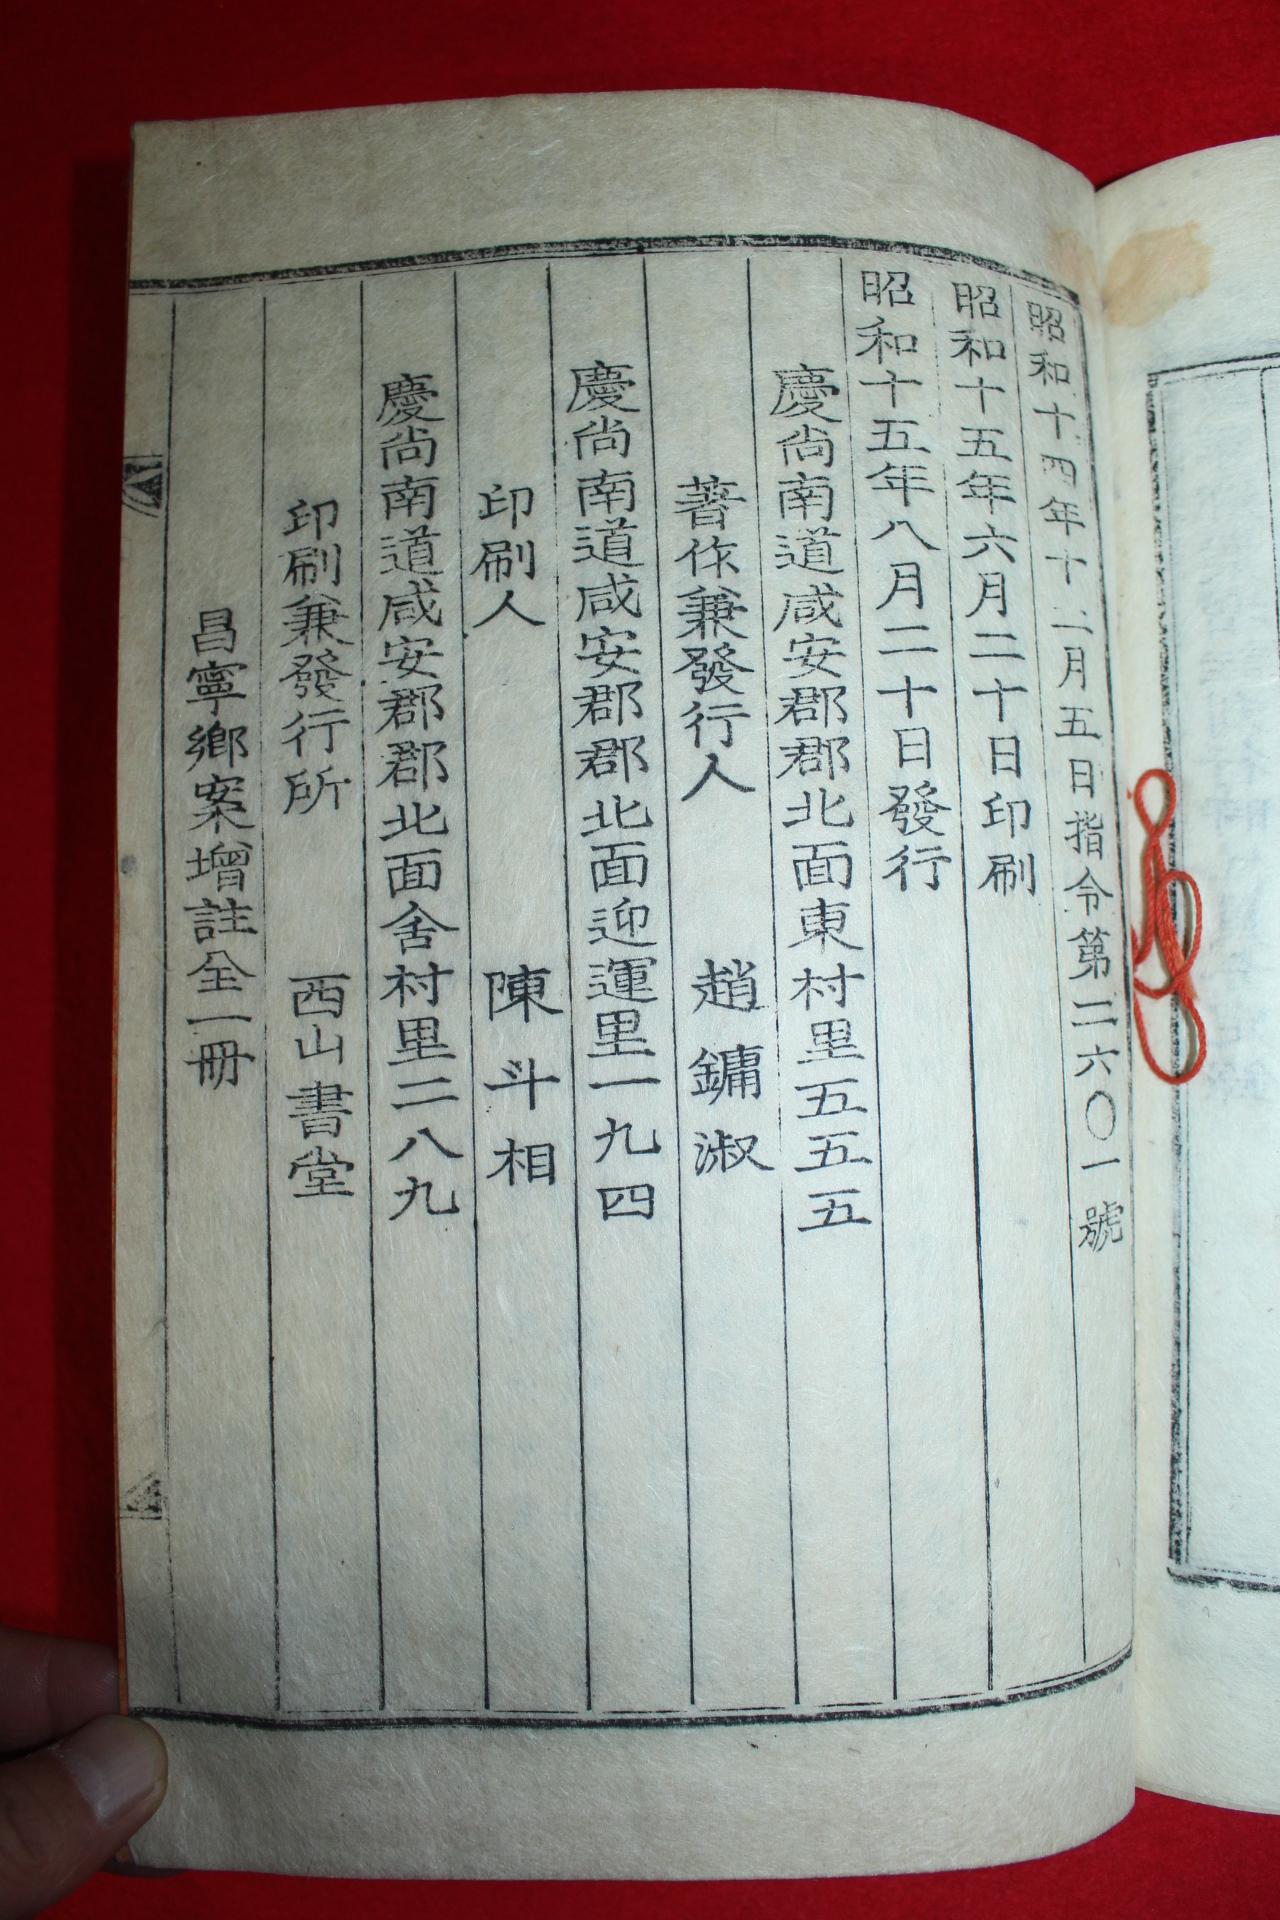 昭和十四年十二月五日指令第二六〇一號
昭和十五年六月二十日印刷
昭和十五年八月二十日發行
慶尙南道咸安郡郡北面東村里五五五
著作兼發行人 趙鏞淑
慶尙南道咸安郡郡北面迎運里一九四
印刷人 陳斗相
慶尙南道咸安郡郡北面舍村里二八九
印刷兼發行所 西山書堂
昌寧鄕案增註全一冊